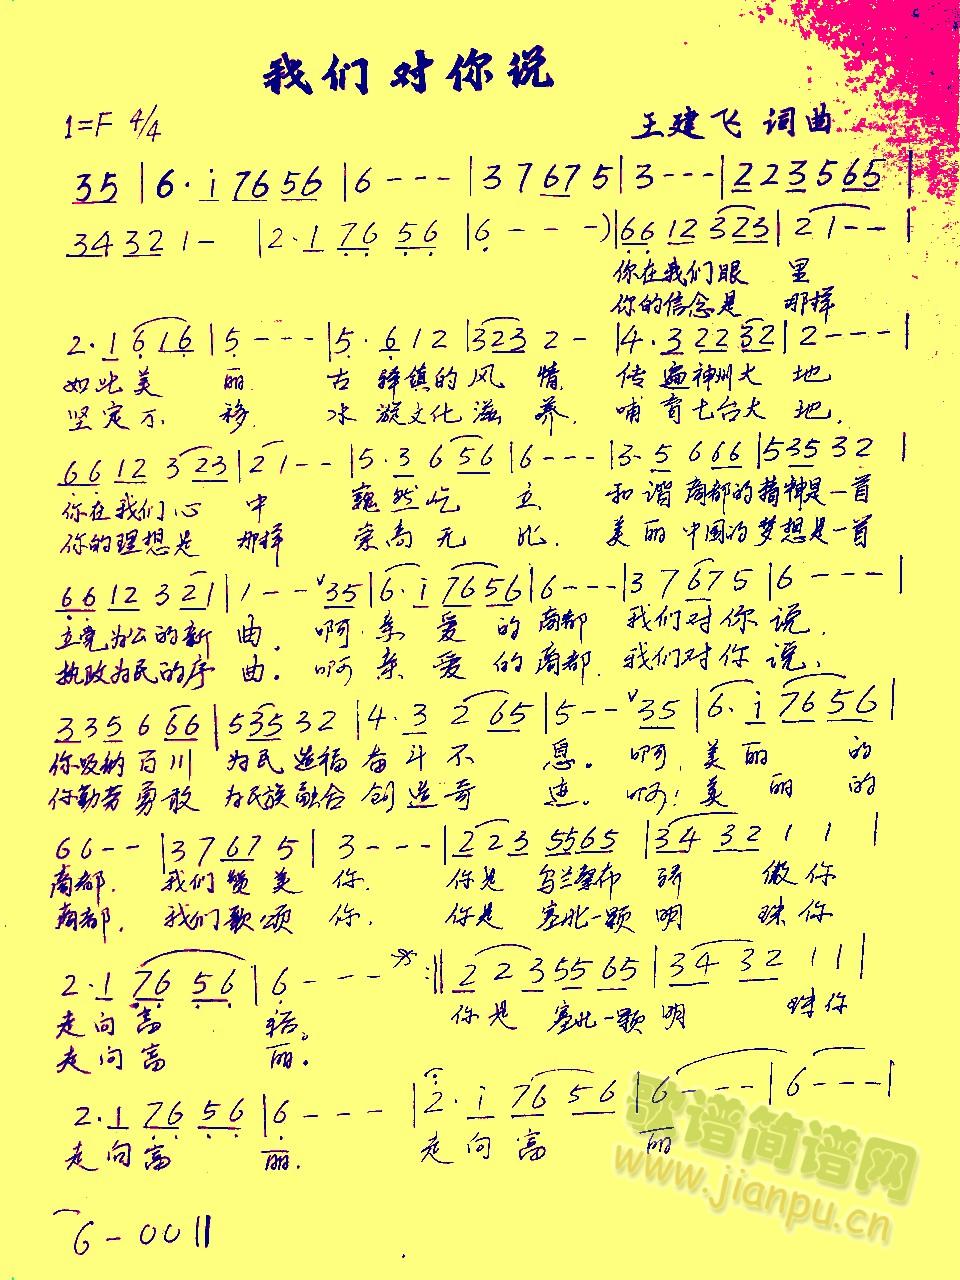 我们对你说
1=F 4/4
王建飞 词曲
35 | 6·i 7656 | 6--- | 37675 | 3--- | 223565 |
34321- | 2·1 7656 | 6---) | 6612 323 | 21-- |
你在我们眼 里
你的信念是 那样
2·1 616 | 5--- | 5·612 | 3232- | 4·32232 | 2--- |
如此美 丽 古驿镇的风 情 传遍神州大 地
坚定不 移 水漩文化滋 养 哺育七台大 地,
6612 323 | 21-- | 5·3656 | 6--- | 3·5666 | 53532 |
你在我们心 中 巍然屹 立 和谐商都的精神是一首
你的理想是 那样 崇高无 比, 美丽中国的梦想是一首
6612 321 | 1-- ˅35 | 6·i 7656 | 6--- | 37675 | 6--- |
立党为公的新 曲。 啊·亲 爱 的商都 我们对你 说,
执政为民的序 曲。 啊 亲 爱 的商都. 我们对你 说,
335666 | 53532 | 4·3265 | 5-- ˅35 | 6·i 7656 |
你吸纳百川 为民造福奋斗不 息。 啊,美 丽 的
你勤劳勇敢 为民族融合创造奇 迹。 啊!美 丽 的
66-- | 37675 | 3--- | 2235565 | 343211 |
商都. 我们赞美 你. 你是乌兰察布 骄 傲你
商都, 我们歌颂 你. 你是塞北一颗明 珠你
2·1 7656 | 6--- :‖ 2235565 | 343211 |
你是 塞北一颗明 珠你
走向富 裕。
走向富 丽.
2·1 7656 | 6--- | 2·i 7656 | 6--- | 6--- |
走向富 丽. 走向富 丽
6-00‖
歌谱简谱网
www.jianpu.cn